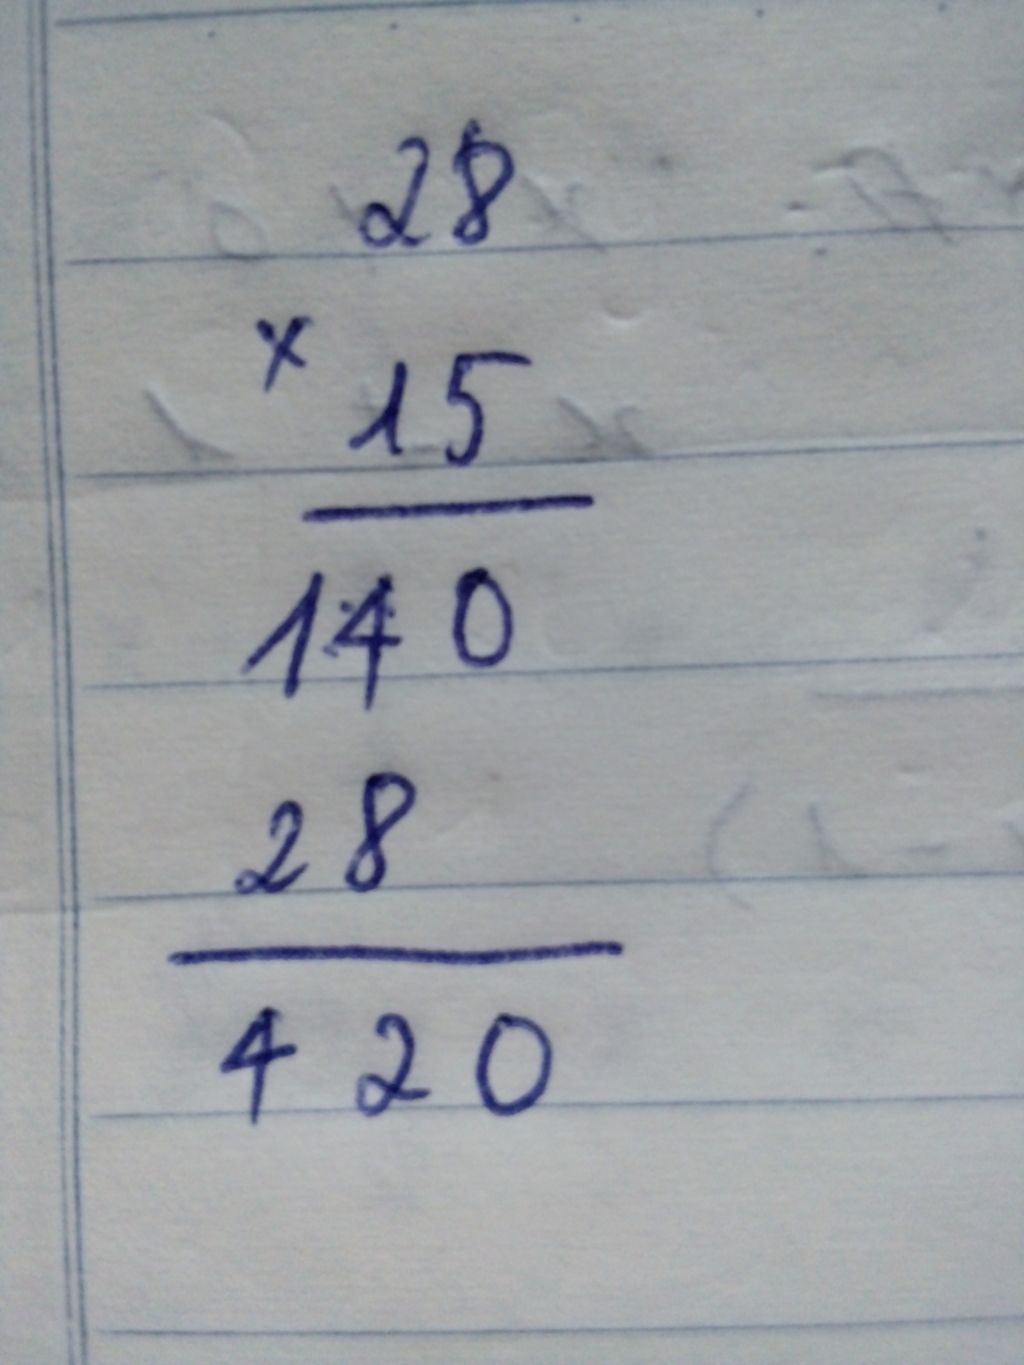 28
x 15
140
28
420